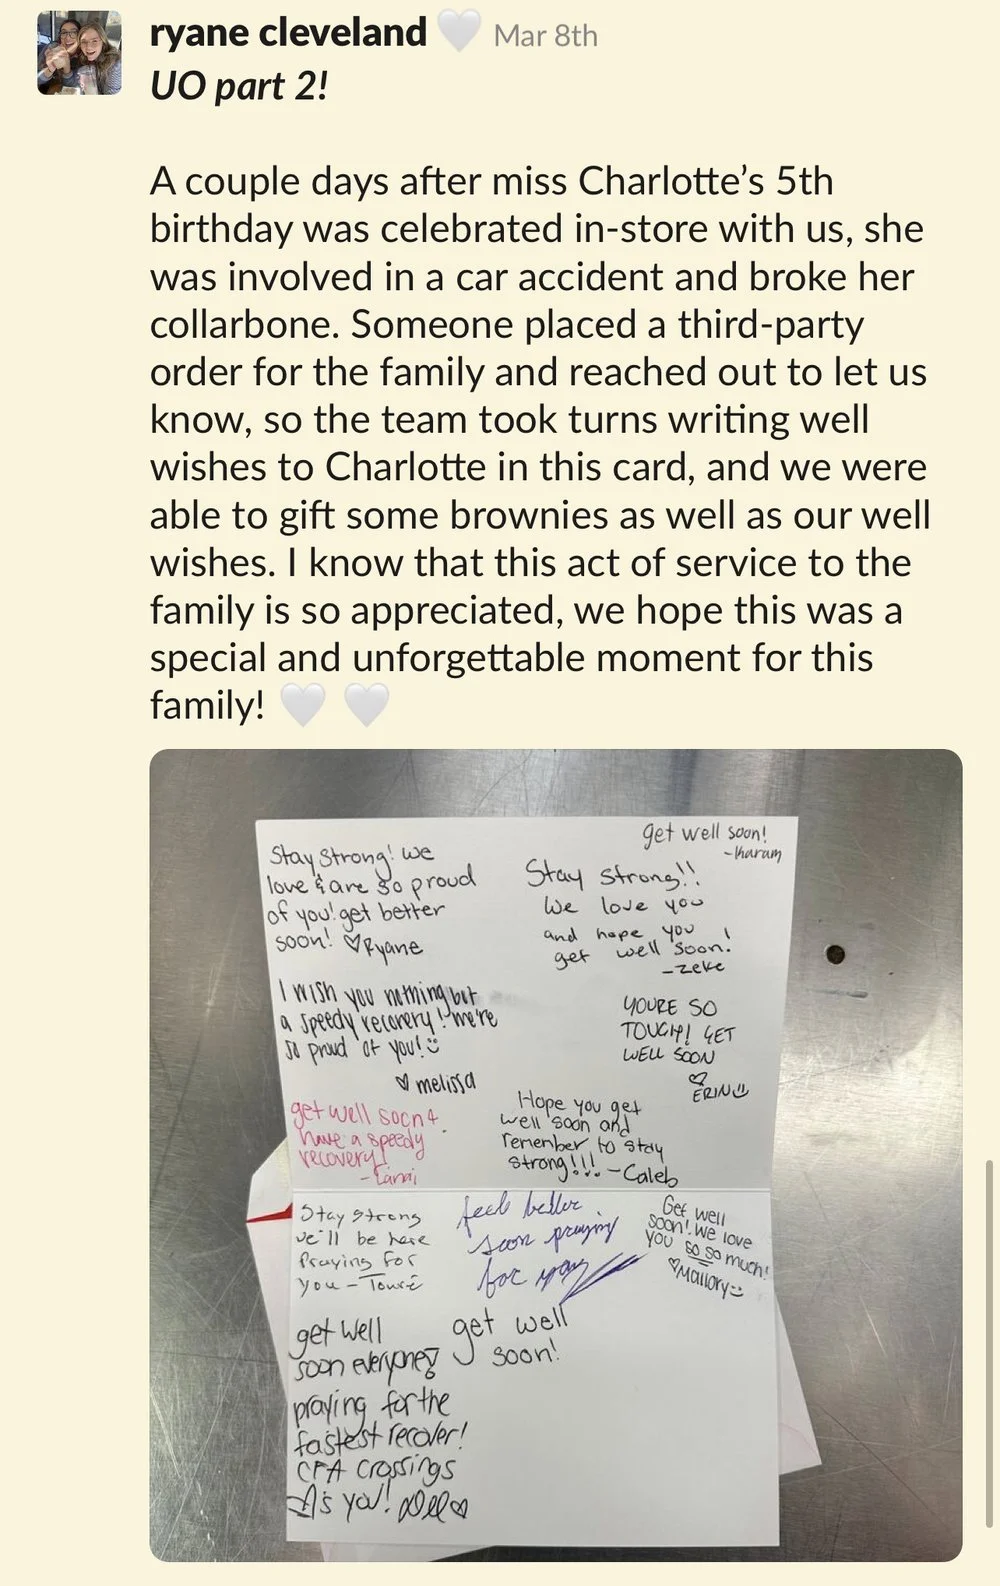 ryane cleveland 🤍 Mar 8th
UO part 2!
A couple days after miss Charlotte's 5th
birthday was celebrated in-store with us, she
was involved in a car accident and broke her
collarbone. Someone placed a third-party
order for the family and reached out to let us
know, so the team took turns writing well
wishes to Charlotte in this card, and we were
able to gift some brownies as well as our well
wishes. I know that this act of service to the
family is so appreciated, we hope this was a
special and unforgettable moment for this
family! 🤍 🤍
get well soon!
Stay Strong! we
love & are so proud
of you! get better
soon! ♡Ryane
Stay strong!!
We love you
and hope you
get well soon!
-zeke
I wish you nothing but
a speedy recovery! we're
so proud of you! :)
♡ melissa
YOURE SO
TOUGH! GET
WELL SOON
♡
ERIN :)
get well soon &
have a speedy
recovery!
Hope you get
well soon and
remenber to stay
strong!!! -Caleb
Stay strong
we'll be here
Praying for
you - Touré
feel better
soon praying
for you
Get well
soon! we love
you so so much!
♡Mallory :)
get well
soon everyone!
praying for the
fastest recover!
CFA Crossings
get well
soon!